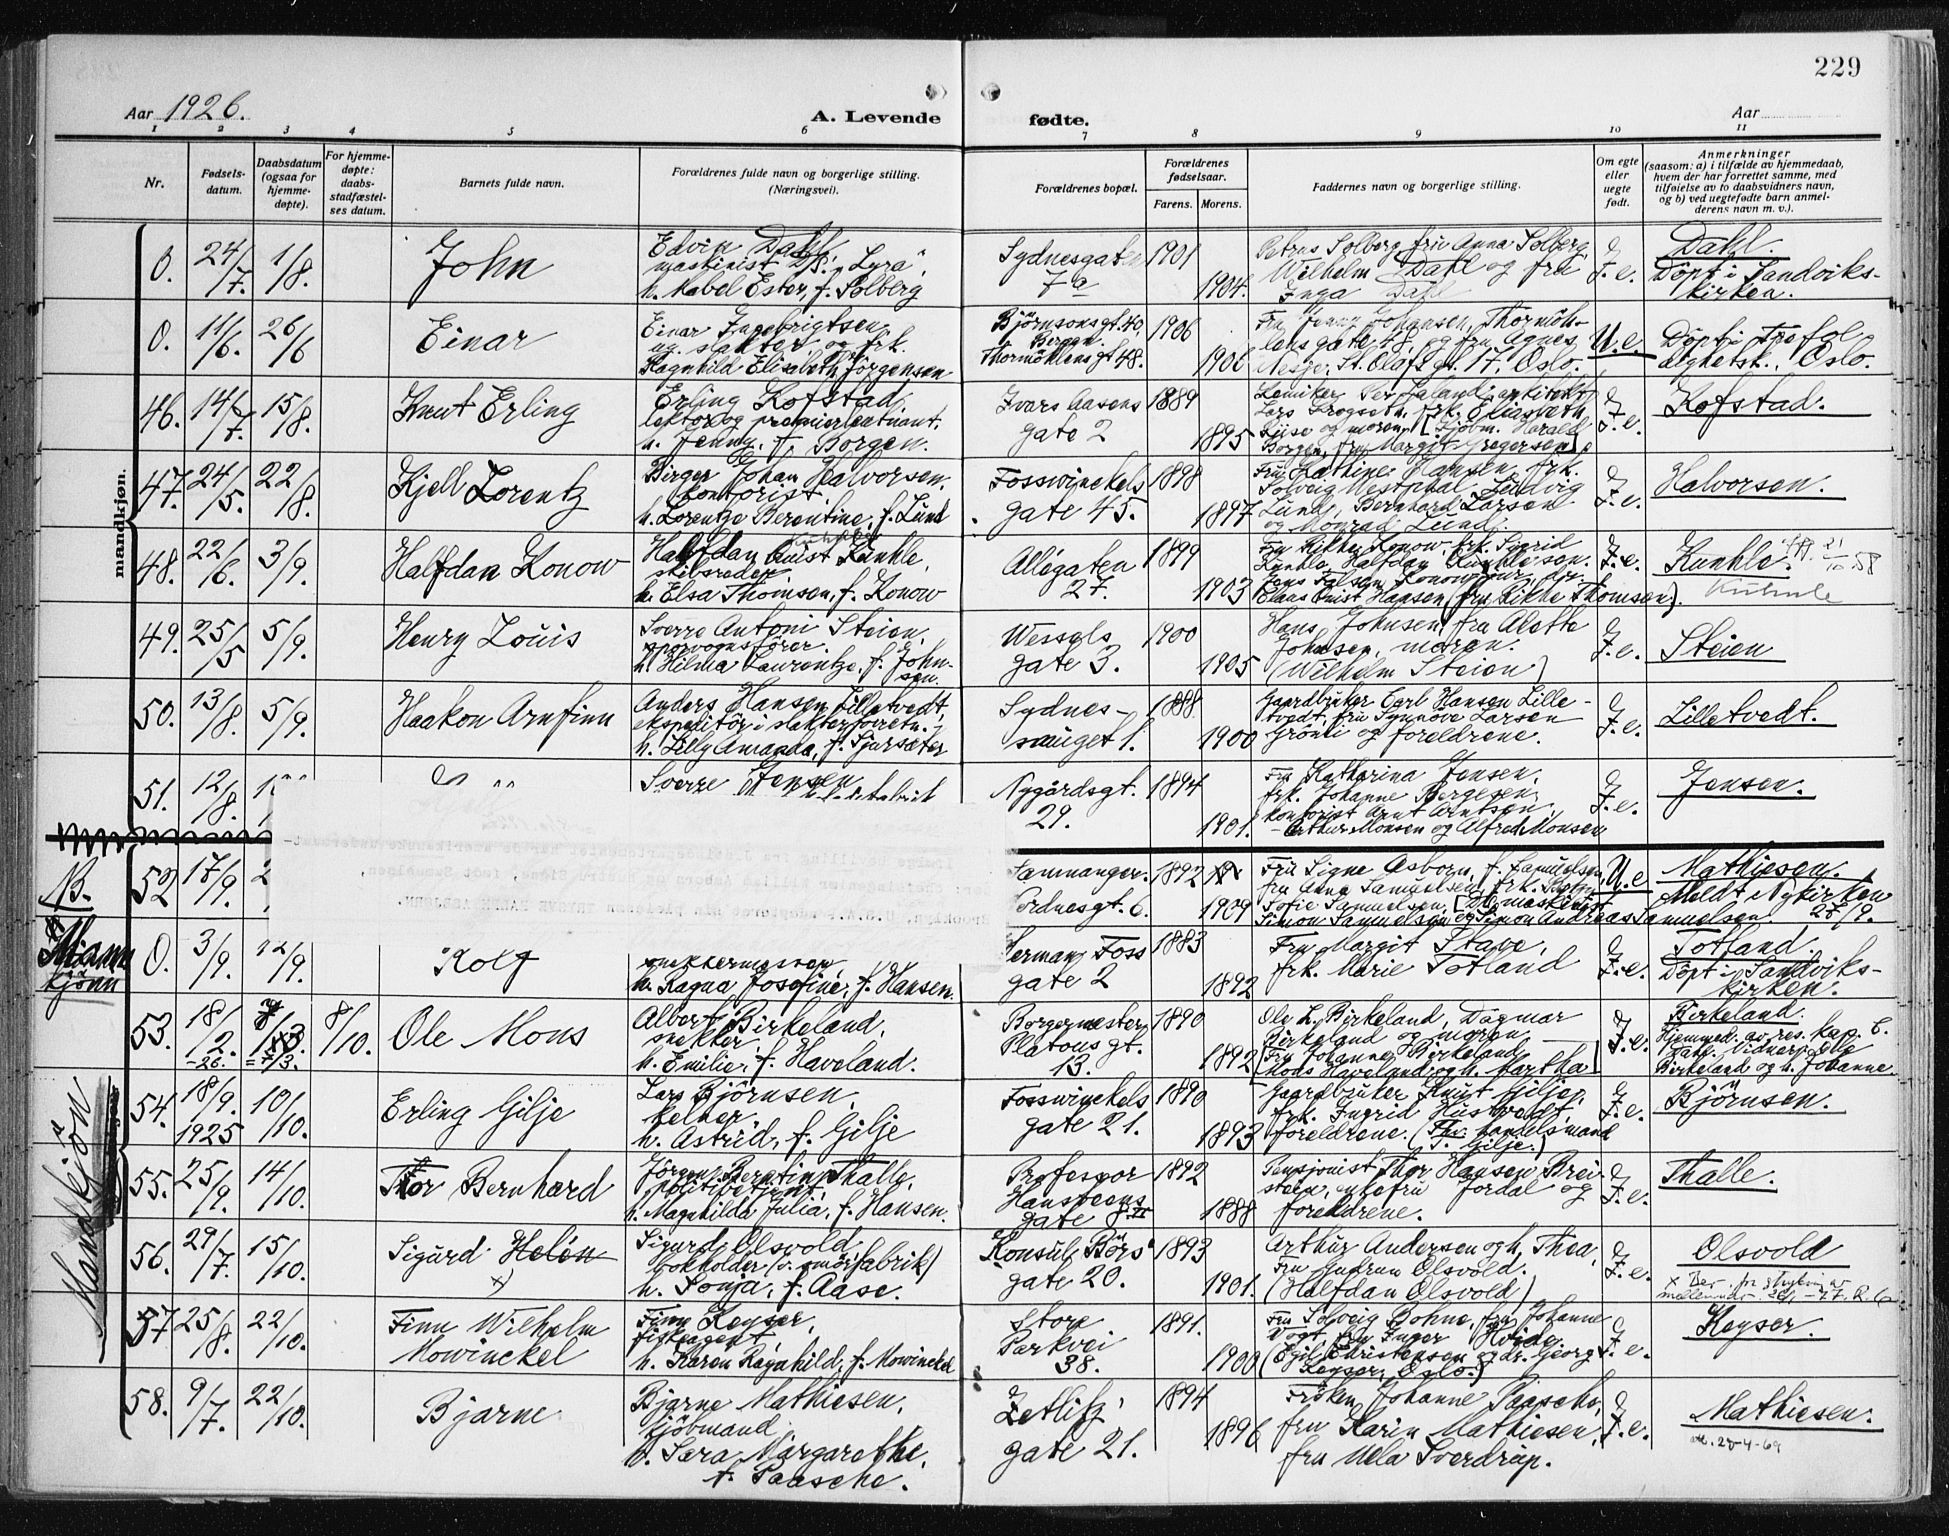 229
Aar 1926.
A. Levende
fødte.
Aar
1 2 3 4 5 6 7 8 9 10 11
Nr.
Fødsels-
datum.
Daabsdatum
(ogsaa for
hjemme-
døpte).
For hjemme-
døpte:
daabs-
stadfæstel-
ses datum.
Barnets fulde navn.
Forældrenes fulde navn og borgerlige stilling.
(Næringsvei).
Forældrenes bopæl.
Forældrenes
fødselsaar.
Farens. Morens.
Faddernes navn og borgerlige stilling.
Om egte
eller
uegte
født.
Anmerkninger
(saasom: a) i tilfælde av hjemmedaab,
hvem der har forrettet samme, med
tilføielse av to daabsvidners navn,
og b) ved uegtefødte barn anmel-
derens navn m. v.).
mandkjøn.
0. 24/7. 1/8. John
Edvin Dahl,
maskinist D/S. "Lyra",
h. Mabel Ester, f. Solberg
Sydnesgaten
7a
1901
1904.
Petrus Solberg, fru Anna Solberg,
Wilhelm Dahl og fru
Inga Dahl
F. e.
Dahl.
Döpt i Sandviks-
kirken.
0. 11/6. 26/6 Einar
Einar Ingebrigtsen,
ug. slakter, og frk.
Ragnhild Elisabeth Jörgensen
Björnsonsgt. 40,
Bergen.
Thormöhlensgt 48.
1906
1906
Fru Jenny Johansen, Thormöh-
lensgate 48, og fru Agnes
Nesje, St. Olafs gt. 17, Oslo.
U. e.
Döpt i Trefol-
dighetsk., Oslo.
46. 14/7. 15/8. Knut Erling
Erling Kofstad,
lektor og premierleutnant,
h. Jenny, f. Borgen.
Ivar Aasens
gate 2
1889
1895
Kemiker Per Saland, arkitekt
Lars Grogseth, frk. Elisabeth
Riise og moren. [Kjöbm. Harald
Borgen, fru Margit Gregersen]
F. e.
Kofstad.
47. 24/5. 22/8. Kjell Lorentz
Birger Johan Halvorsen,
kontorist,
h. Lorentze Berentine, f. Lund
Fosswinckels
gate 45.
1898
1897
Fru Kathine Hansen, frk.
Solveig Westphal, Ludvig
Lund, Bernhard Larsen
og Monrad Lund.
F. e.
Halvorsen.
48. 22/6. 3/9. Halfdan Konow
Halfdan Kunst Kunhle,
skibsreder,
h. Elsa Thomsen, f. Konow
Allégaten
27.
1899
1903
Fru Rikke Konow, frk. Sigrid
Kunhle, Halfdan Kunhle sen.
Jens Falsen Konow jur., dir.
Claus Quist Hansen (fru Rikke Thomsen).
F. e.
Kunhle. 21/10 58
49. 25/5 5/9. Henry Louis
Sverre Antoni Steien,
sporvognsförer.
h. Hilma Laurentze, f. John-
sen.
Wessels
gate 3.
1900
1905
Hans Johnsen, fru Alette
Johnsen, moren.
(Wilhelm Steien)
F. e.
Steien
50. 13/8. 5/9. Haakon Arnfinn
Anders Hansen Lilletvedt,
ekspeditör i slakterforretn.
h. Lilly Amanda, f. Sjursæter
Sydnes-
smuget 1.
1888
1900
Gaardbruker Carl Hansen Lille-
tvedt, fru Synnöve Larsen
Grönli og foreldrene.
F. e.
Lilletvedt.
51. 12/8.
Sverre Jensen
Nygårdsgt.
29.
1894
1901.
Fru Katharina Jensen,
frk. Johanne Bergesen,
kontorist Arnt Arntsen,
Arthur Monsen og Alfred Monsen
F. e.
Jensen.
B.
52 17/9.
Samnanger.
Nordnesgt. 6.
1892
1904
Fru Signe Asborn, f. Samuelsen
fru Anna Samuelsen, frk.
Sofie Samuelsen,
Simon Samuelsen og Simon Andreas Samuelsen.
U. e
Mathiesen.
Meldt i Nykirken
27/9.
Mann
kjönn
0. 3/9. 12/9. Rolf
snekkermester,
h. Ragna Josefine, f. Hansen.
Herman Foss
gate 2
1883
1892
Fru Margit Stave,
frk. Marie Totland
F. e.
Totland.
Döpt i Sandviks-
kirken.
53. 18/2. -26. =7/3. 8/10. Ole Mons
Albert Birkeland,
snekker,
h. Emilie, f. Haveland.
Borgermester
Platous gt.
13.
1890
1892
Ole L. Birkeland, Dagmar
Birkeland og moren
(Fru Johanne Birkeland,
Mons Haveland og h. Martha)
F. e.
Birkeland.
Hjemmed. av res. kap. C.
Vidner: Ole
Birkeland og h. Johanne
Mandkjön
54. 18/9. 1925 10/10. Erling Gilje
Lars Björnsen,
kelner,
h. Astrid, f. Gilje
Fosswinckels
gate 21.
1890
1893
Gaardbruker Knut Gilje,
frk. Ingrid Hustvedt,
foreldrene. (Thv. handelsmand
T. Gilje.)
F. e.
Björnsen.
55. 25/9. 14/10. Thor Bernhard
Jörgen Berntin Thalle,
politibetjent,
h. Magnhilda Julia, f. Hansen.
Professor
Hansteens
gate
1892
1888
Pensjonist Thor Hansen Brei-
stein, enkefru Jordal og
foreldrene.
F. e.
Thalle.
56. 29/7. 15/10. Sigurd Helén
x)
Sigurd Olsvold
bokholder (v. smörfabrik)
h. Sonja, f. Aase.
Konsul Börs
gate 20.
1893
1901.
Arthur Andersen og h. Thea,
Fru Gudrun Olsvold.
(Halfdan Olsvold)
F. e.
Olsvold
57 25/8. 22/10. Finn Wilhelm
Mowinckel
Finn Keyser,
fiskeagent,
h. Karen Ragnhild, f. Mowinckel
Store
Parkvei
38.
1891.
1900
Fru Solveig Bohne, fru Johanne
Vogt, fru Inger Hvide,
(Egil Christensen og dr. Georg
Keyser, Oslo.)
F. e.
Keyser.
58. 9/7. 22/10. Bjarne
Bjarne Mathiesen,
kjöbmand
h. Sara Margarethe,
f. Paasche.
Zetlitz'
gate 21.
1894
1896
Fröken Johanne Paasche,
fru Karin Mathiesen,
fru Mela Sverdrup.
F. e.
Mathiesen.
att. 28-4-69